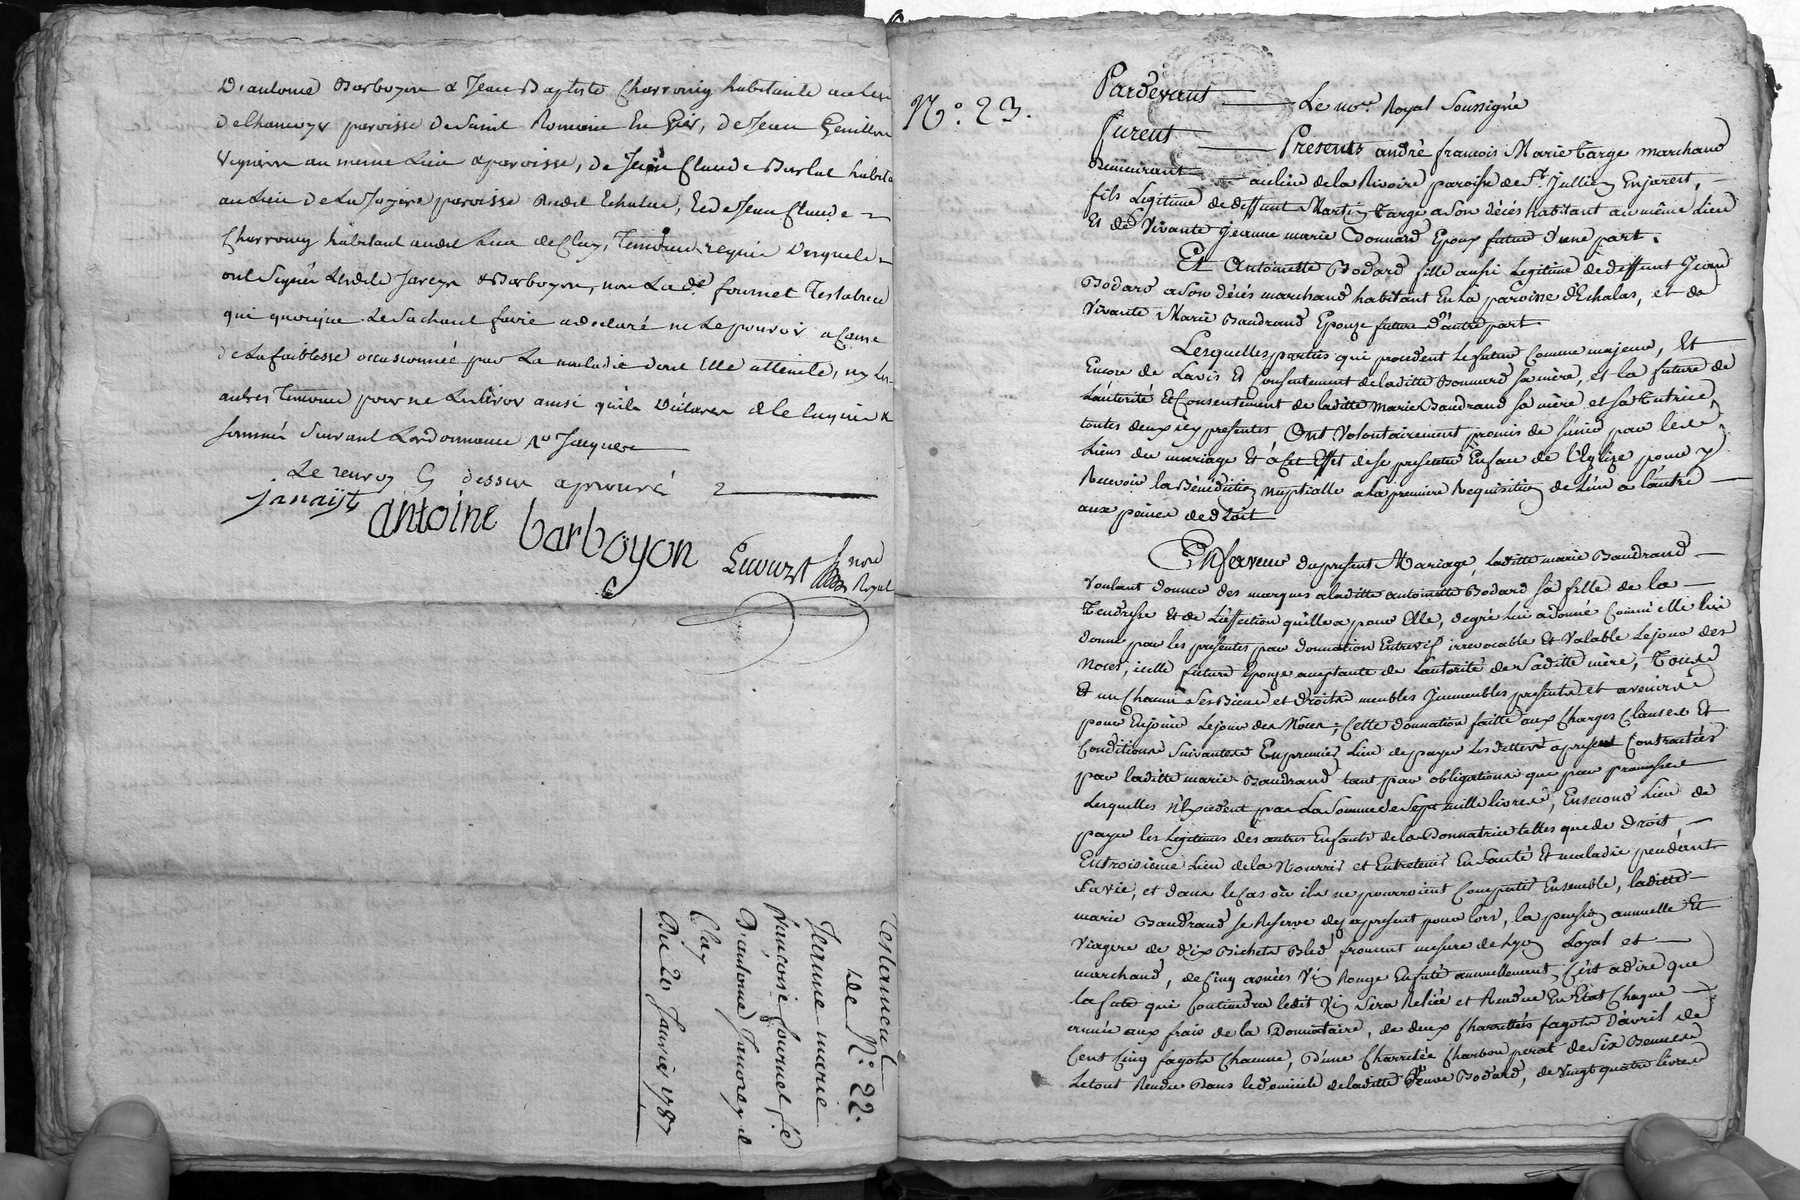 D'antoine Barboyon & Jean Baptiste Charvoin habitants au lieu
de Chanoux paroisse de Saint Romain En Gier, de Jean
Vigneron au meme Lieu & paroisse, de Jean Claude habita
au Lieu de La paroisse dudit Echalas, & de Jean Claude
habitant audit lieu de Clay, Temoins requis desquels
ont Signés Lesdits & Barboyon, non La de. fournet Testatrice
qui quoique Le Sachant faire a declaré ne Le pouvoir a Cause
de La faiblesse occasionnée par La maladie dont Elle atteinte, ny Les
autres Temoins pour ne Le Sçavoir ainsi qu'ils Déclarent de Ce Enquis &
Sommés Suivant Lordonnance
Le renvoy Cy dessus approuvé
janaÿst antoine barboyon
nore
Royal
Testament
de N°: 22.
Jeanne marie
françoise fournet fe
D'antoine Janorey de
Clay
Du 20 Janvier 1787
N°. 23.
Pardevant Le nore. Royal Soussigné
furent Presents andré francois Marie Targe marchand
Demeurant au lieu de la Rivoire paroisse de St. Jullien Enjarest,
fils Legitime de deffunt Martin Targe a Son décés habitant au même Lieu
Et de Vivante Jeanne marie Donnard Epoux futur d'une part.
Et Antoinette Bodard fille aussi Legitime de deffunt Jean
Bodard a Son décés marchand habitant En La paroisse d'Echalas, et de
Vivante Marie Baudrand Epouse future d'autre part
Lesquelles parties qui procedent Le futur Comme majeur, Et
Encore de Lavis Et Consentement de laditte Donnard Sa mère, et la future de
L'autorité Et Consentement de laditte Marie Baudrand Sa mère et Sa Tutrice,
toutes deux icy presentes, Ont Volontairement promis de S'unir par les
Liens du mariage Et à Cet Effet de Se presenter En face de l'Eglise pour y
Recevoir la Bénédiction nuptialle a La premiere Requisition de L'un a l'autre
aux peines de droit
En faveur du present Mariage, Laditte marie Baudrand
Voulant donner des marques a laditte antoinette Bodard Sa fille de la
Tendresse Et de L'affection qu'elle a pour Elle, de gré Lui a donné Comme elle lui
donne par les presentes par donnation Entrevif irrevocable Et Valable Le jour des
Noces, icelle future Epouse acceptante de L'autorité de Saditte mère, Tous
Et un Chacun Ses Biens et droits meubles Jmmeubles presents et avenirs
pour En jouir Le jour des Noces; Cette donnation faitte aux Charges Clauses Et
Conditions Suivantes En premier Lieu de payer Les dettes apresent Contractées
par laditte marie Baudrand tant par obligations que par promesses
Lesquelles n'Excedent pas La Somme de Sept mille livres, En Second Lieu de
payer les Legitimes des autres Enfants de la Donnatrice telles que de Droit
En troisieme Lieu de la Nourrir et Entretenir En Santé Et maladie pendant
Sa vie, et dans le Cas où ils ne pourroient Compatir Ensemble, laditte
marie Baudrand Se Reserve des apresent pour lors, la pension annuelle Et
Viagere de dix Bichets Bled froment mesure de Lyon Loyal et
marchand, de Cinq asnées Vin Rouge En futé annuellement, C'est a dire que
la futé qui Contiendra ledit Vin Sera Reliée et Rendue En Etat Chaque
année aux frais de la Donnataire, de deux Charettées fagots d'avril de
Cent Cinq fagots Chacune, d'une Charretée Charbon perat de Six Bennes
Le tout Rendu Dans le domicile de laditte Veuve Bodard, de Vingt quatre livres